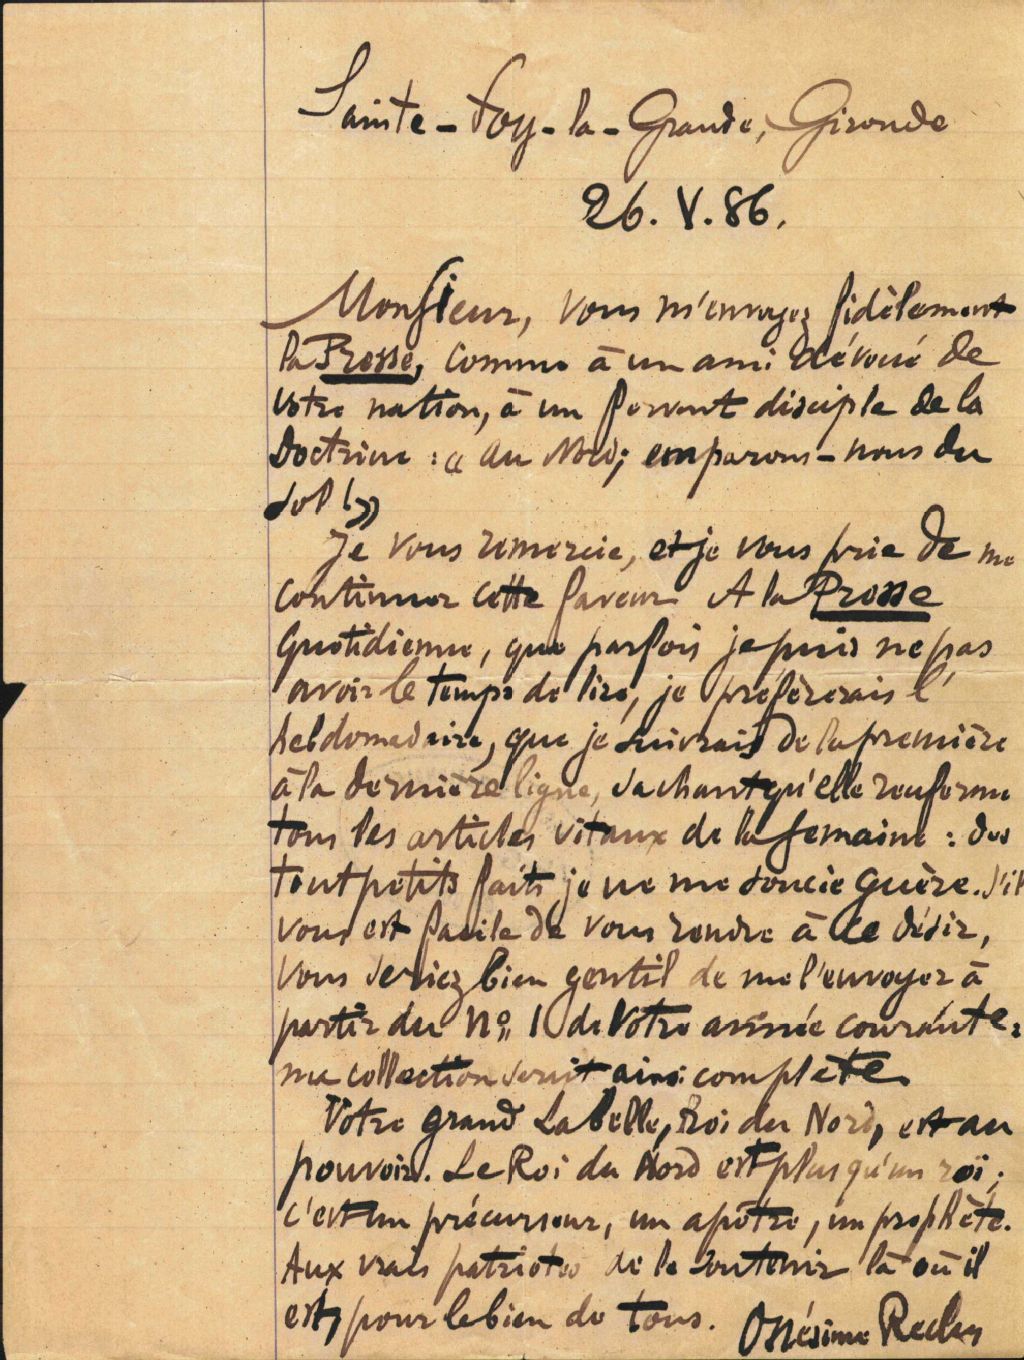 Sainte-Foy-la-Grande, Gironde
26. V. 86.
Monsieur, vous m'envoyez fidèlement
la Presse, comme à un ami dévoué de
votre nation, à un fervent disciple de la
Doctrine : « Au Nord; emparons-nous du
sol ! »
Je vous remercie, et je vous prie de me
continuer cette faveur. A la Presse
quotidienne, que parfois je puis ne pas
avoir le temps de lire, je préfèrerais l'
hebdomadaire, que je suivrais de la première
à la dernière ligne, sachant qu'elle renferme
tous les articles vitaux de la semaine : des
tout petits faits je ne me soucie guère. S'il
vous est facile de vous rendre à ce désir,
vous seriez bien gentil de me l'envoyer à
partir du No 1 de votre année courante :
ma collection serait ainsi complète.
Votre grand Labelle, Roi du Nord, est au
pouvoir. Le Roi du Nord est plus qu'un roi ;
c'est un précurseur, un apôtre, un prophète.
Aux vrais patriotes de le soutenir là où il
est, pour le bien de tous. Onésime Reclus